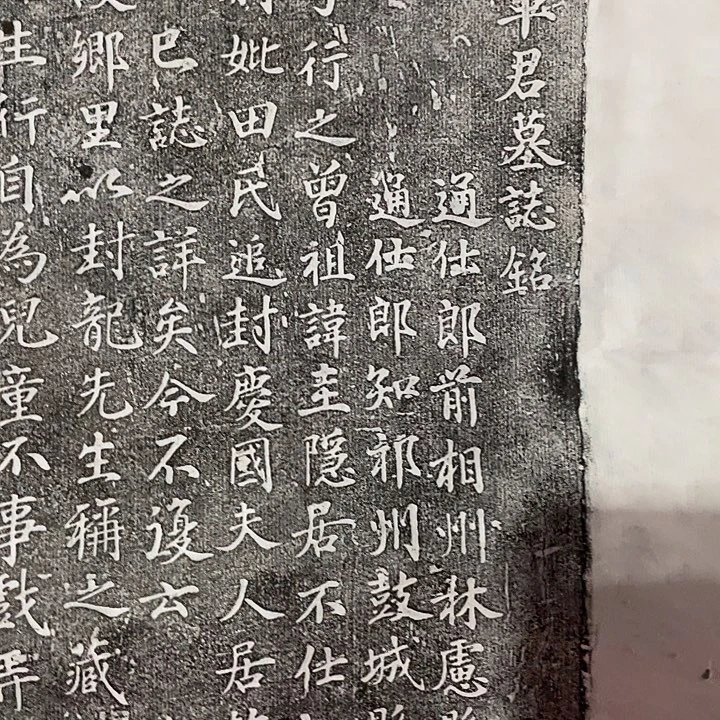 君墓誌銘
通仕郎前相州林慮
通仕郎知祁州鼓城
行之曾祖諱圭隱居不仕
妣田氏追封慶國夫人居
巳誌之詳矣今不復云
鄉里以封龍先生稱之藏
生行自為兒童不事戲弄